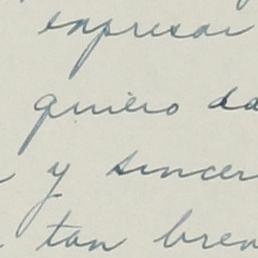 expresar
quiero da
y sincer
tan brev